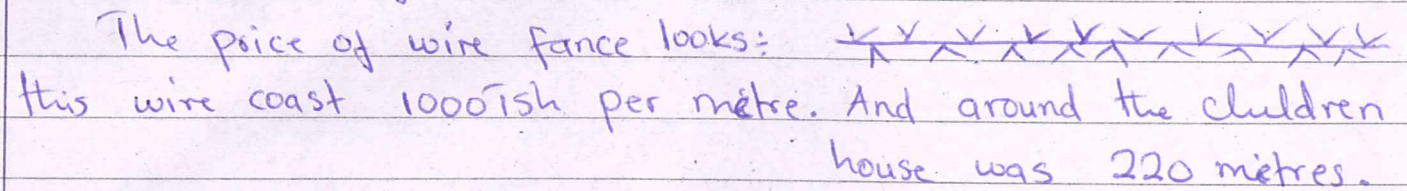 The price of wire fance looks:
this wire coast 1000Tsh per metre. And around the children
house was 220 metres.